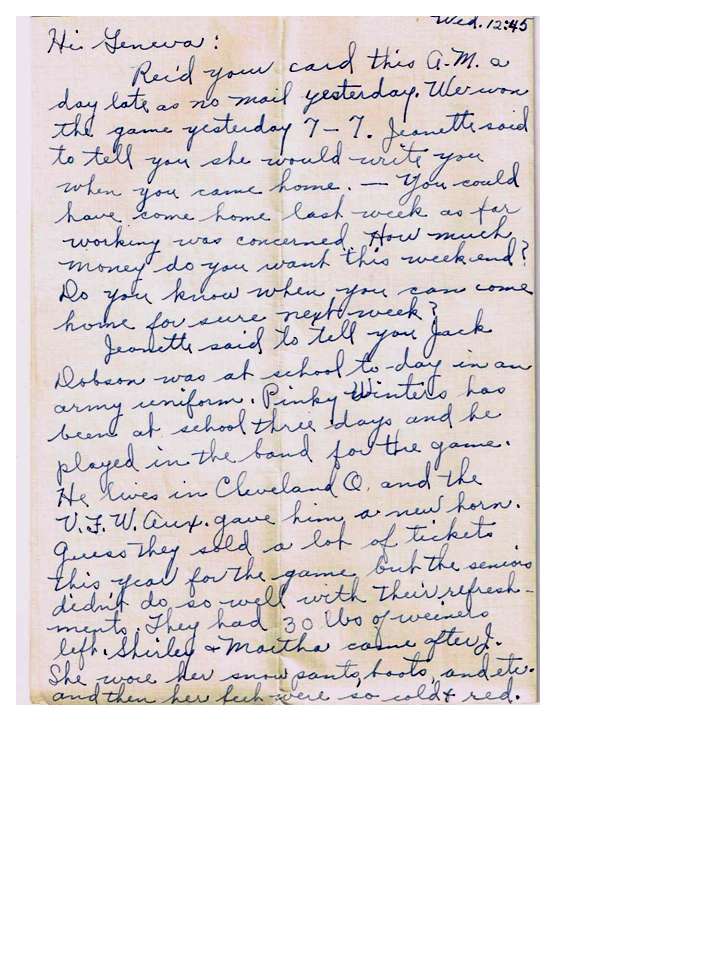 Wed. 12:45
Hi Geneva:
Rec'd your card this A.M. a
day late as no mail yesterday. We won
the game yesterday 7-7. Jeanette said
to tell you she would write you
when you came home. — You could
have come home last week as far
working was concerned. How much
money do you want this week end?
Do you know when you can come
home for sure next week?
Jeanette said to tell you Jack
Dobson was at school to-day in an
army uniform. Pinky Winters has
been at school three days and he
played in the band for the game.
He lives in Cleveland O. and the
V.F.W. Aux. gave him a new horn.
Guess they sold a lot of tickets
this year for the game but the seniors
didn't do so well with their refresh-
ments. They had 30 lbs of weiners
left. Shirley & Martha came after J.
She wore her snow pants, boots, and etc.
and then her feet were so cold & red.